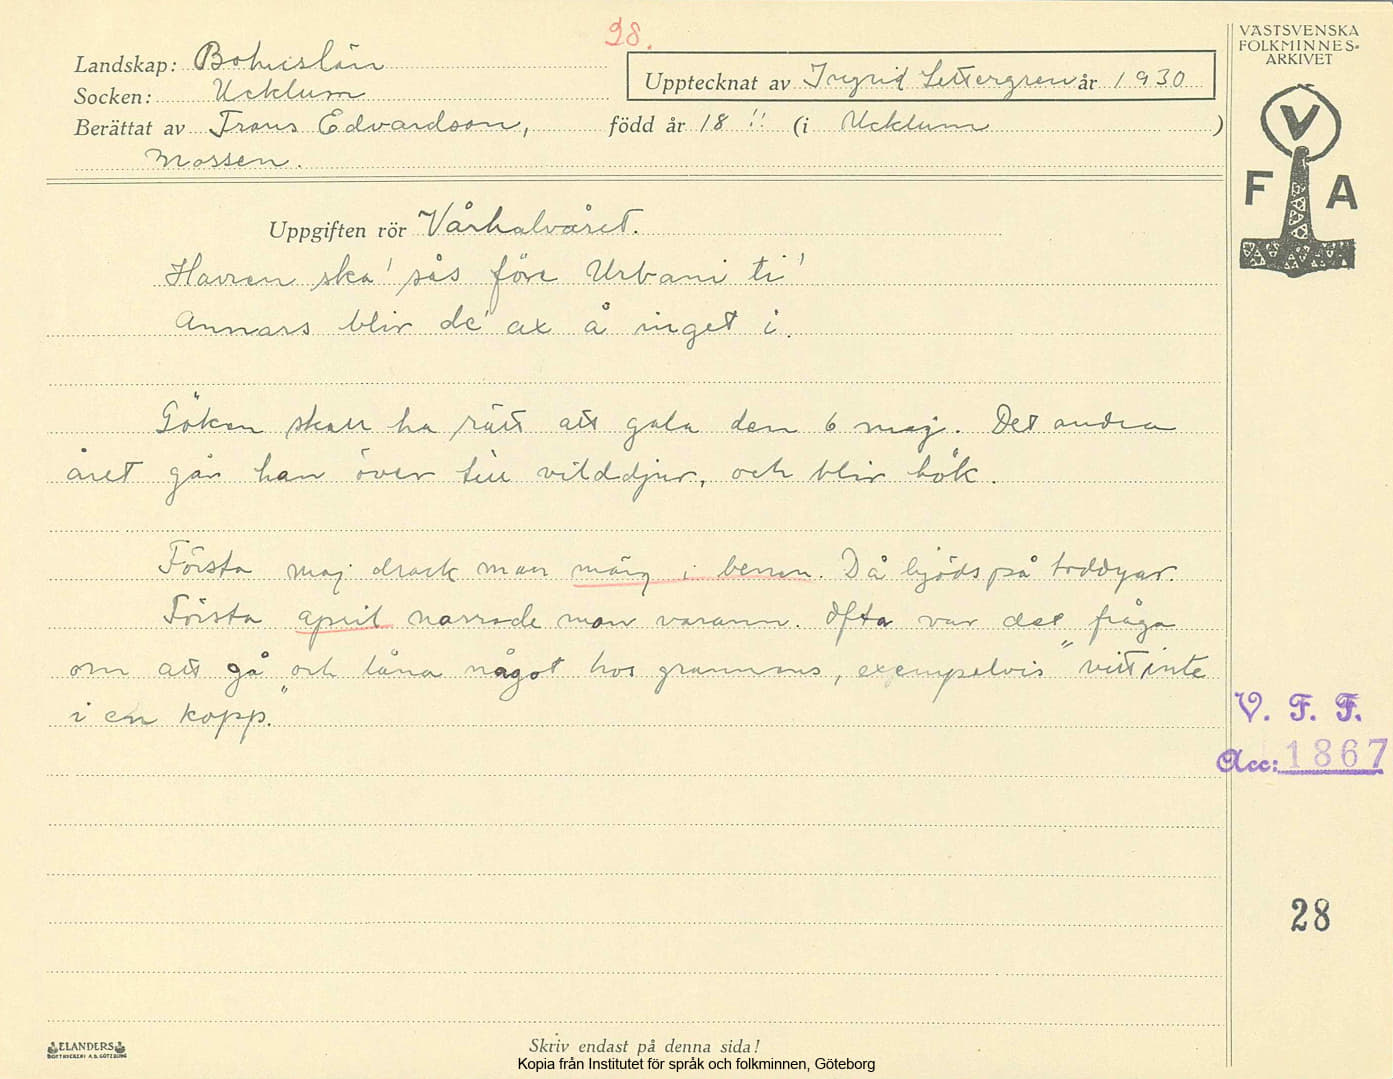 28.
VÄSTSVENSKA
FOLKMINNES-
ARKIVET
Landskap: Bohuslän
Socken: Ucklum
Upptecknat av Ingrid Settergren år 1930
Berättat av Frans Edvardson, född år 18 !! (i Ucklum )
Mossen.
V
F A
Uppgiften rör Vårhalvåret.
Havren ska' sås före Urbani ti'
Annars blir de' ax å inget i.
Göken skall ha rätt att gala den 6 maj. Det andra
året går han över till vilddjur, och blir hök.
Första maj drack man märg i benen. Då bjöds på toddyar.
Första april narrade man varann. Ofta var det fråga
om att gå och låna något hos grannens, exempelvis "vitt inte
i en kopp."
V. F. F.
Acc: 1867
28
ELANDERS
BOKTRYCKERI A.B. GÖTEBORG
Skriv endast på denna sida!
Kopia från Institutet för språk och folkminnen, Göteborg